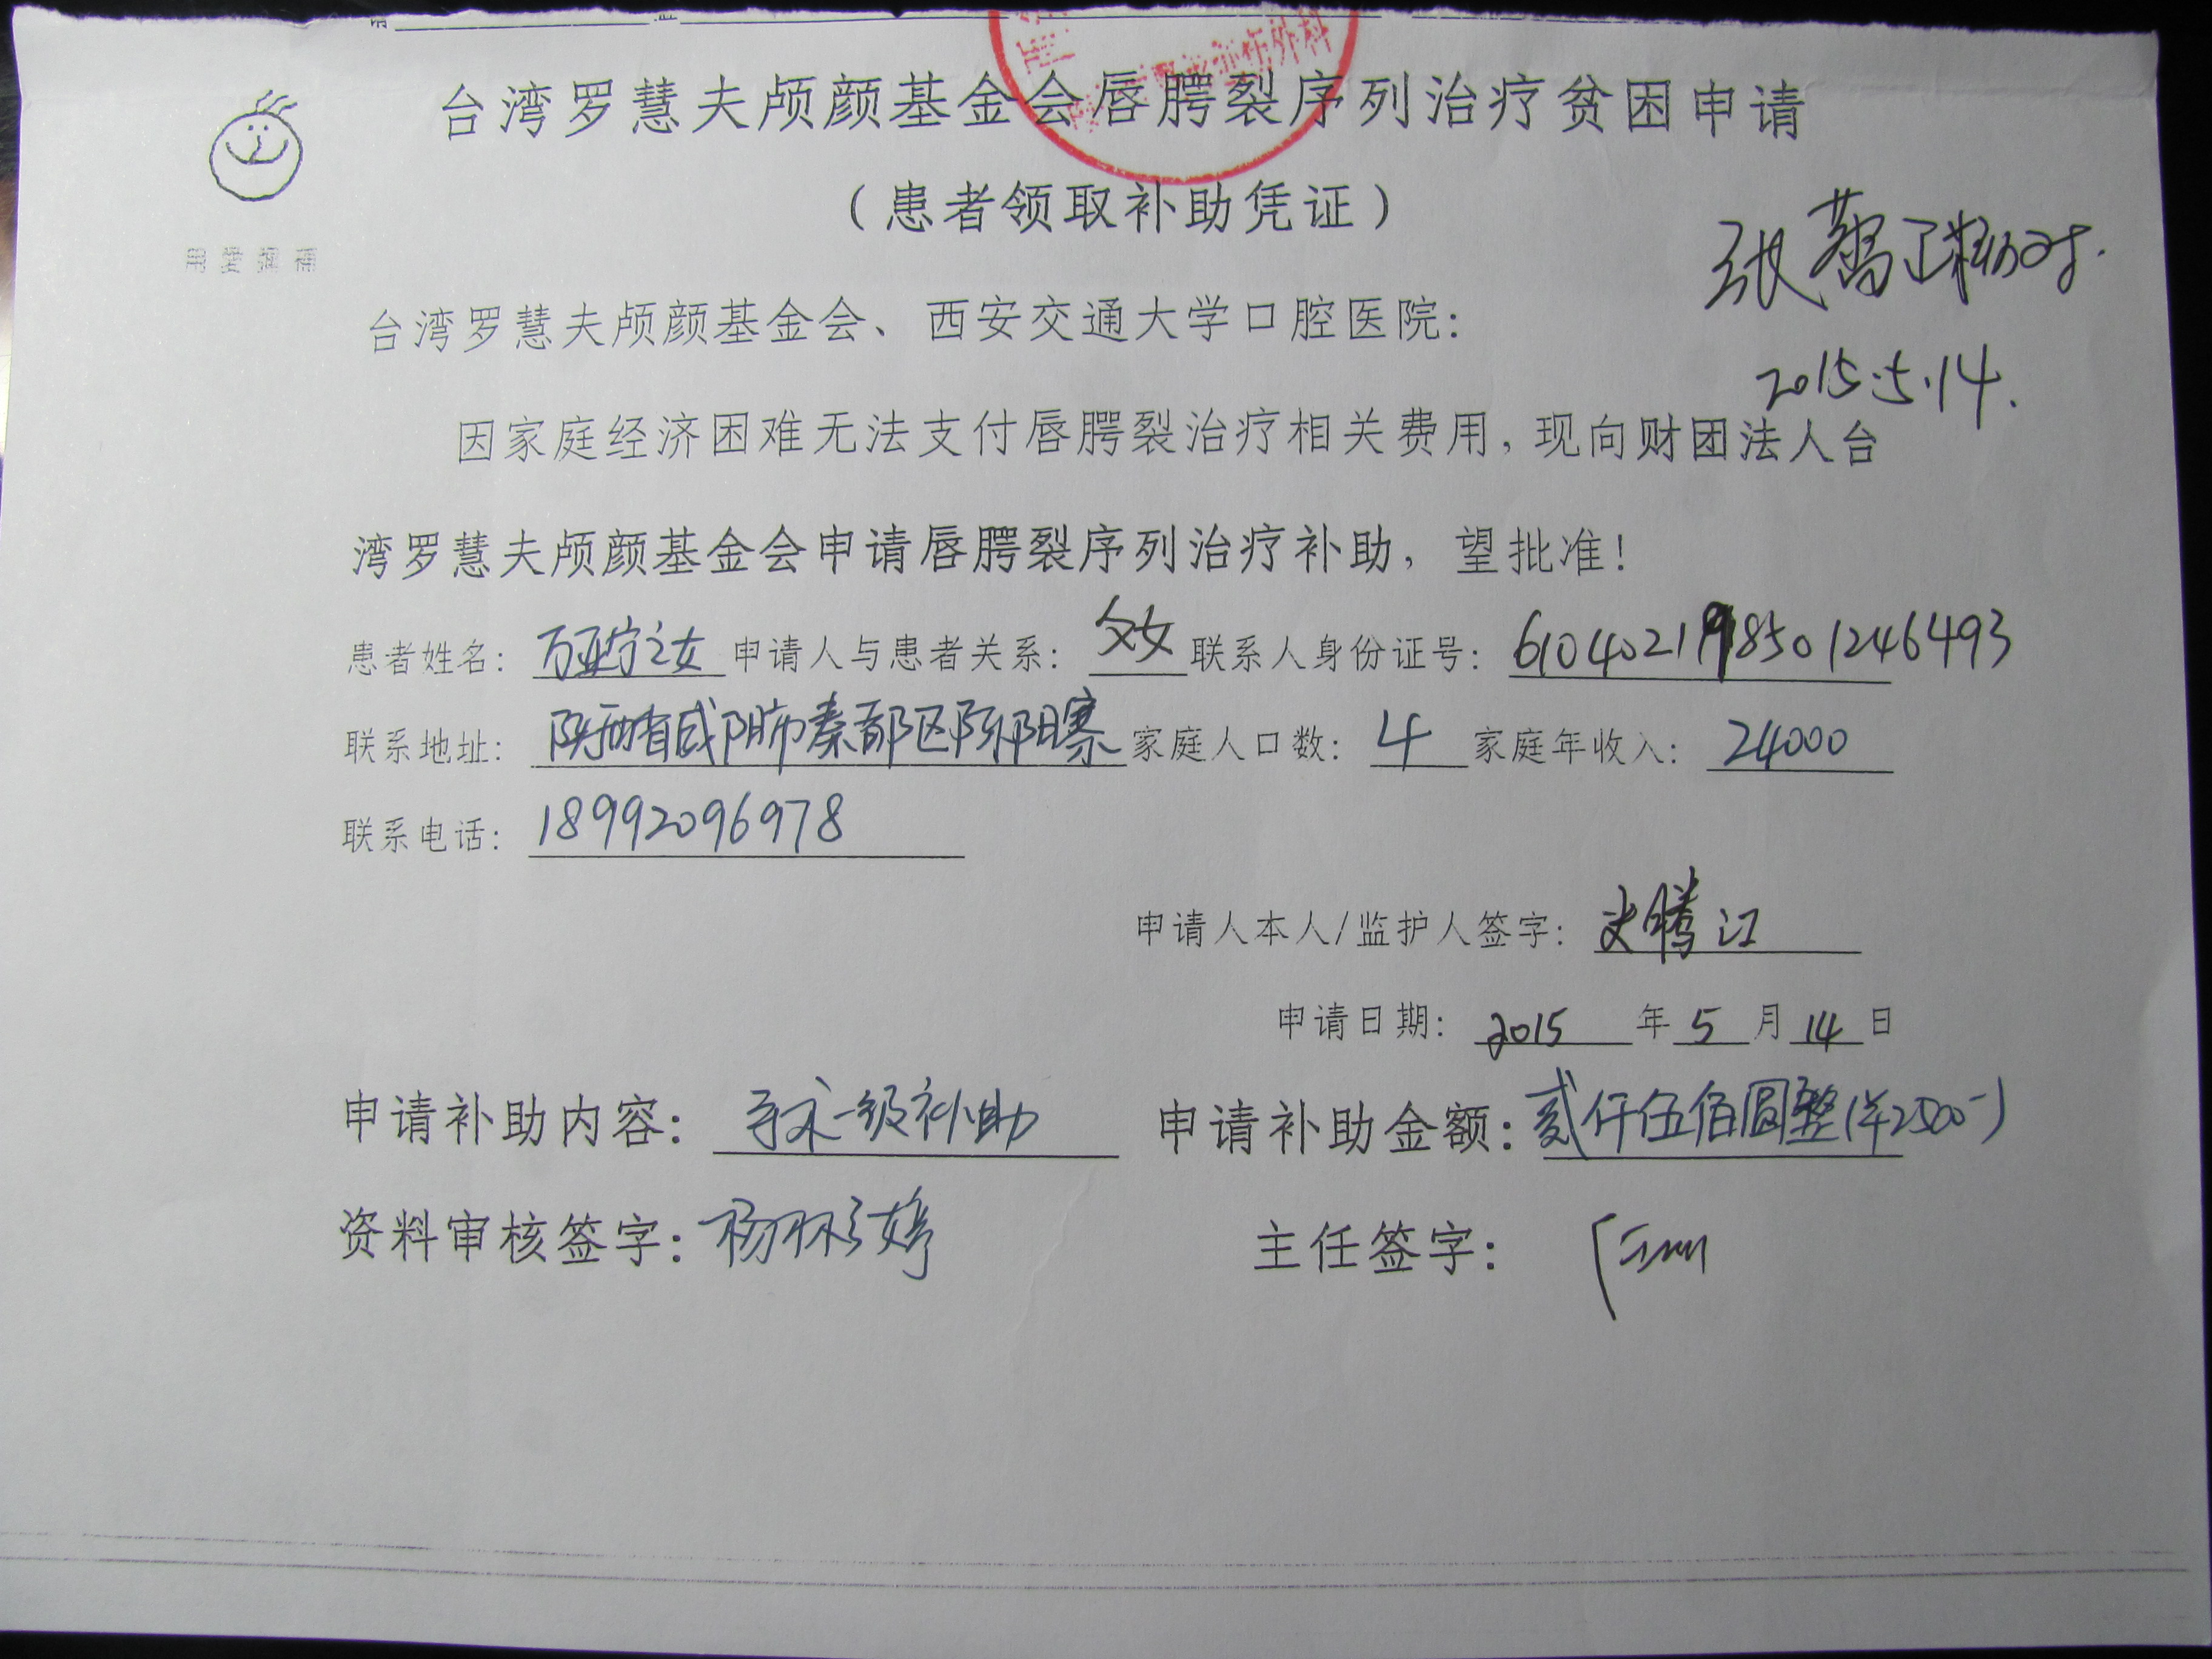 台湾罗慧夫颅颜基金会唇腭裂序列治疗贫困申请
(患者领取补助凭证)
用愛彌補
台湾罗慧夫颅颜基金会、西安交通大学口腔医院:
2015.5.14.
因家庭经济困难无法支付唇腭裂治疗相关费用,现向财团法人台
湾罗慧夫颅颜基金会申请唇腭裂序列治疗补助,望批准!
患者姓名: 万亚宁之女 申请人与患者关系: 父女 联系人身份证号: 610402198501246493
联系地址: 陕西省咸阳市秦都区陈阳寨 家庭人口数: 4 家庭年收入: 24000
联系电话: 18992096978
申请人本人/监护人签字: 史腾江
申请日期: 2015 年 5 月 14 日
申请补助内容: 手术一级补助 申请补助金额: 贰仟伍佰圆整(¥2500-)
资料审核签字: 杨 婷 主任签字: